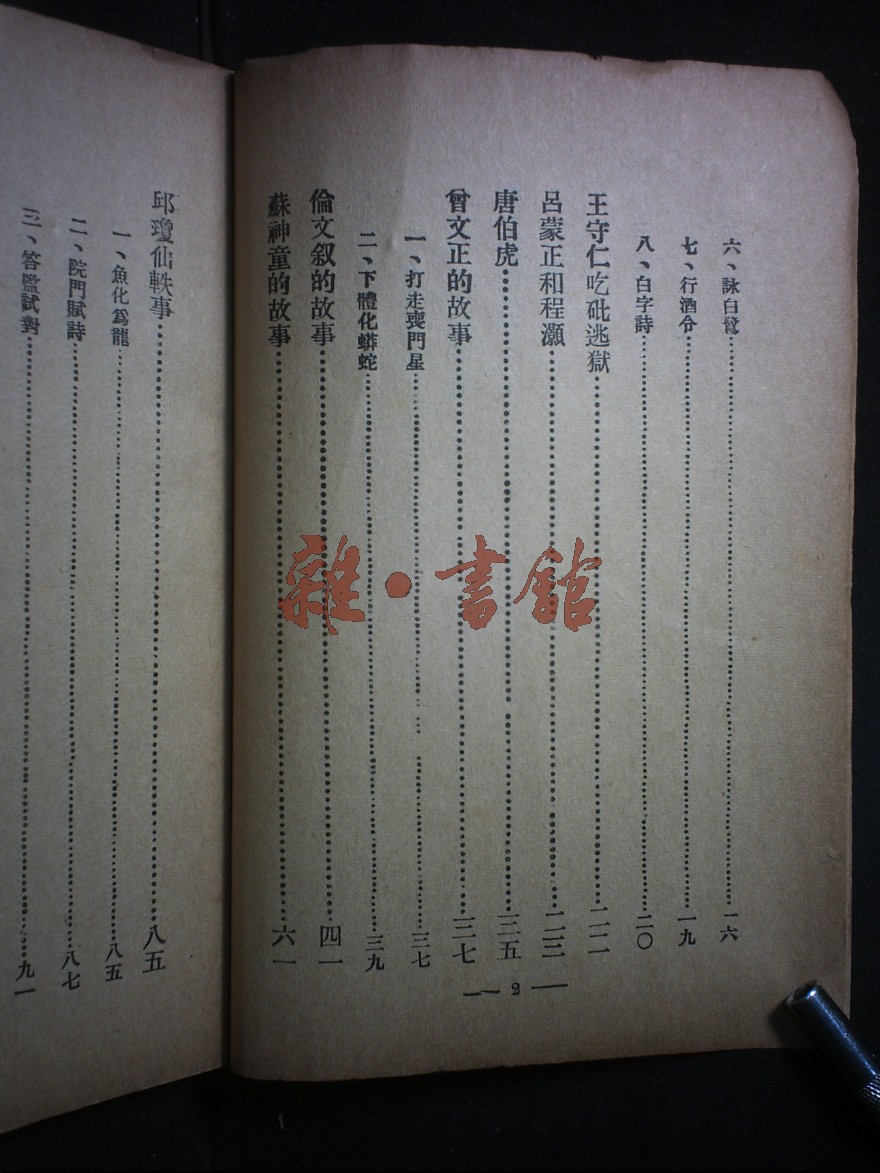 六、詠白鷺……一六
七、行酒令……一九
八、白字詩……二〇
王守仁吃砒逃獄……二二
呂蒙正和程灝……二三
唐伯虎……三五
曾文正的故事……三七
一、打走喪門星……三七
二、下體化蟒蛇……三九
倫文叙的故事……四一
蘇神童的故事……六一
— 2 —
邱瓊仙軼事……八五
一、魚化爲龍……八五
二、院門賦詩……八七
三、答監試對……九一
雜·書館